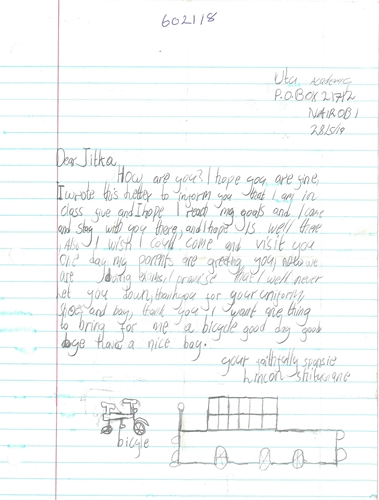 602118
Uta Academic
P.O.BOX 21712
NAIROBI
28/5/19
Dear Jitka
How are you? I hope you are fine,
I wrote this letter to inform you that I am in
class five and I hope I reach my goals and I cane
and stay with you there, and I hope is well there
, Also I wish I could come and visit you
one day my parents are greeting you,
are doing I promise that I well never
let you down, thank you for your uniform,
shoes and bag, thank you I want one thing
to bring for me a bicycle good day good
bye Have a nice bay.
your faithfully sponsie
Lincon
bicycle